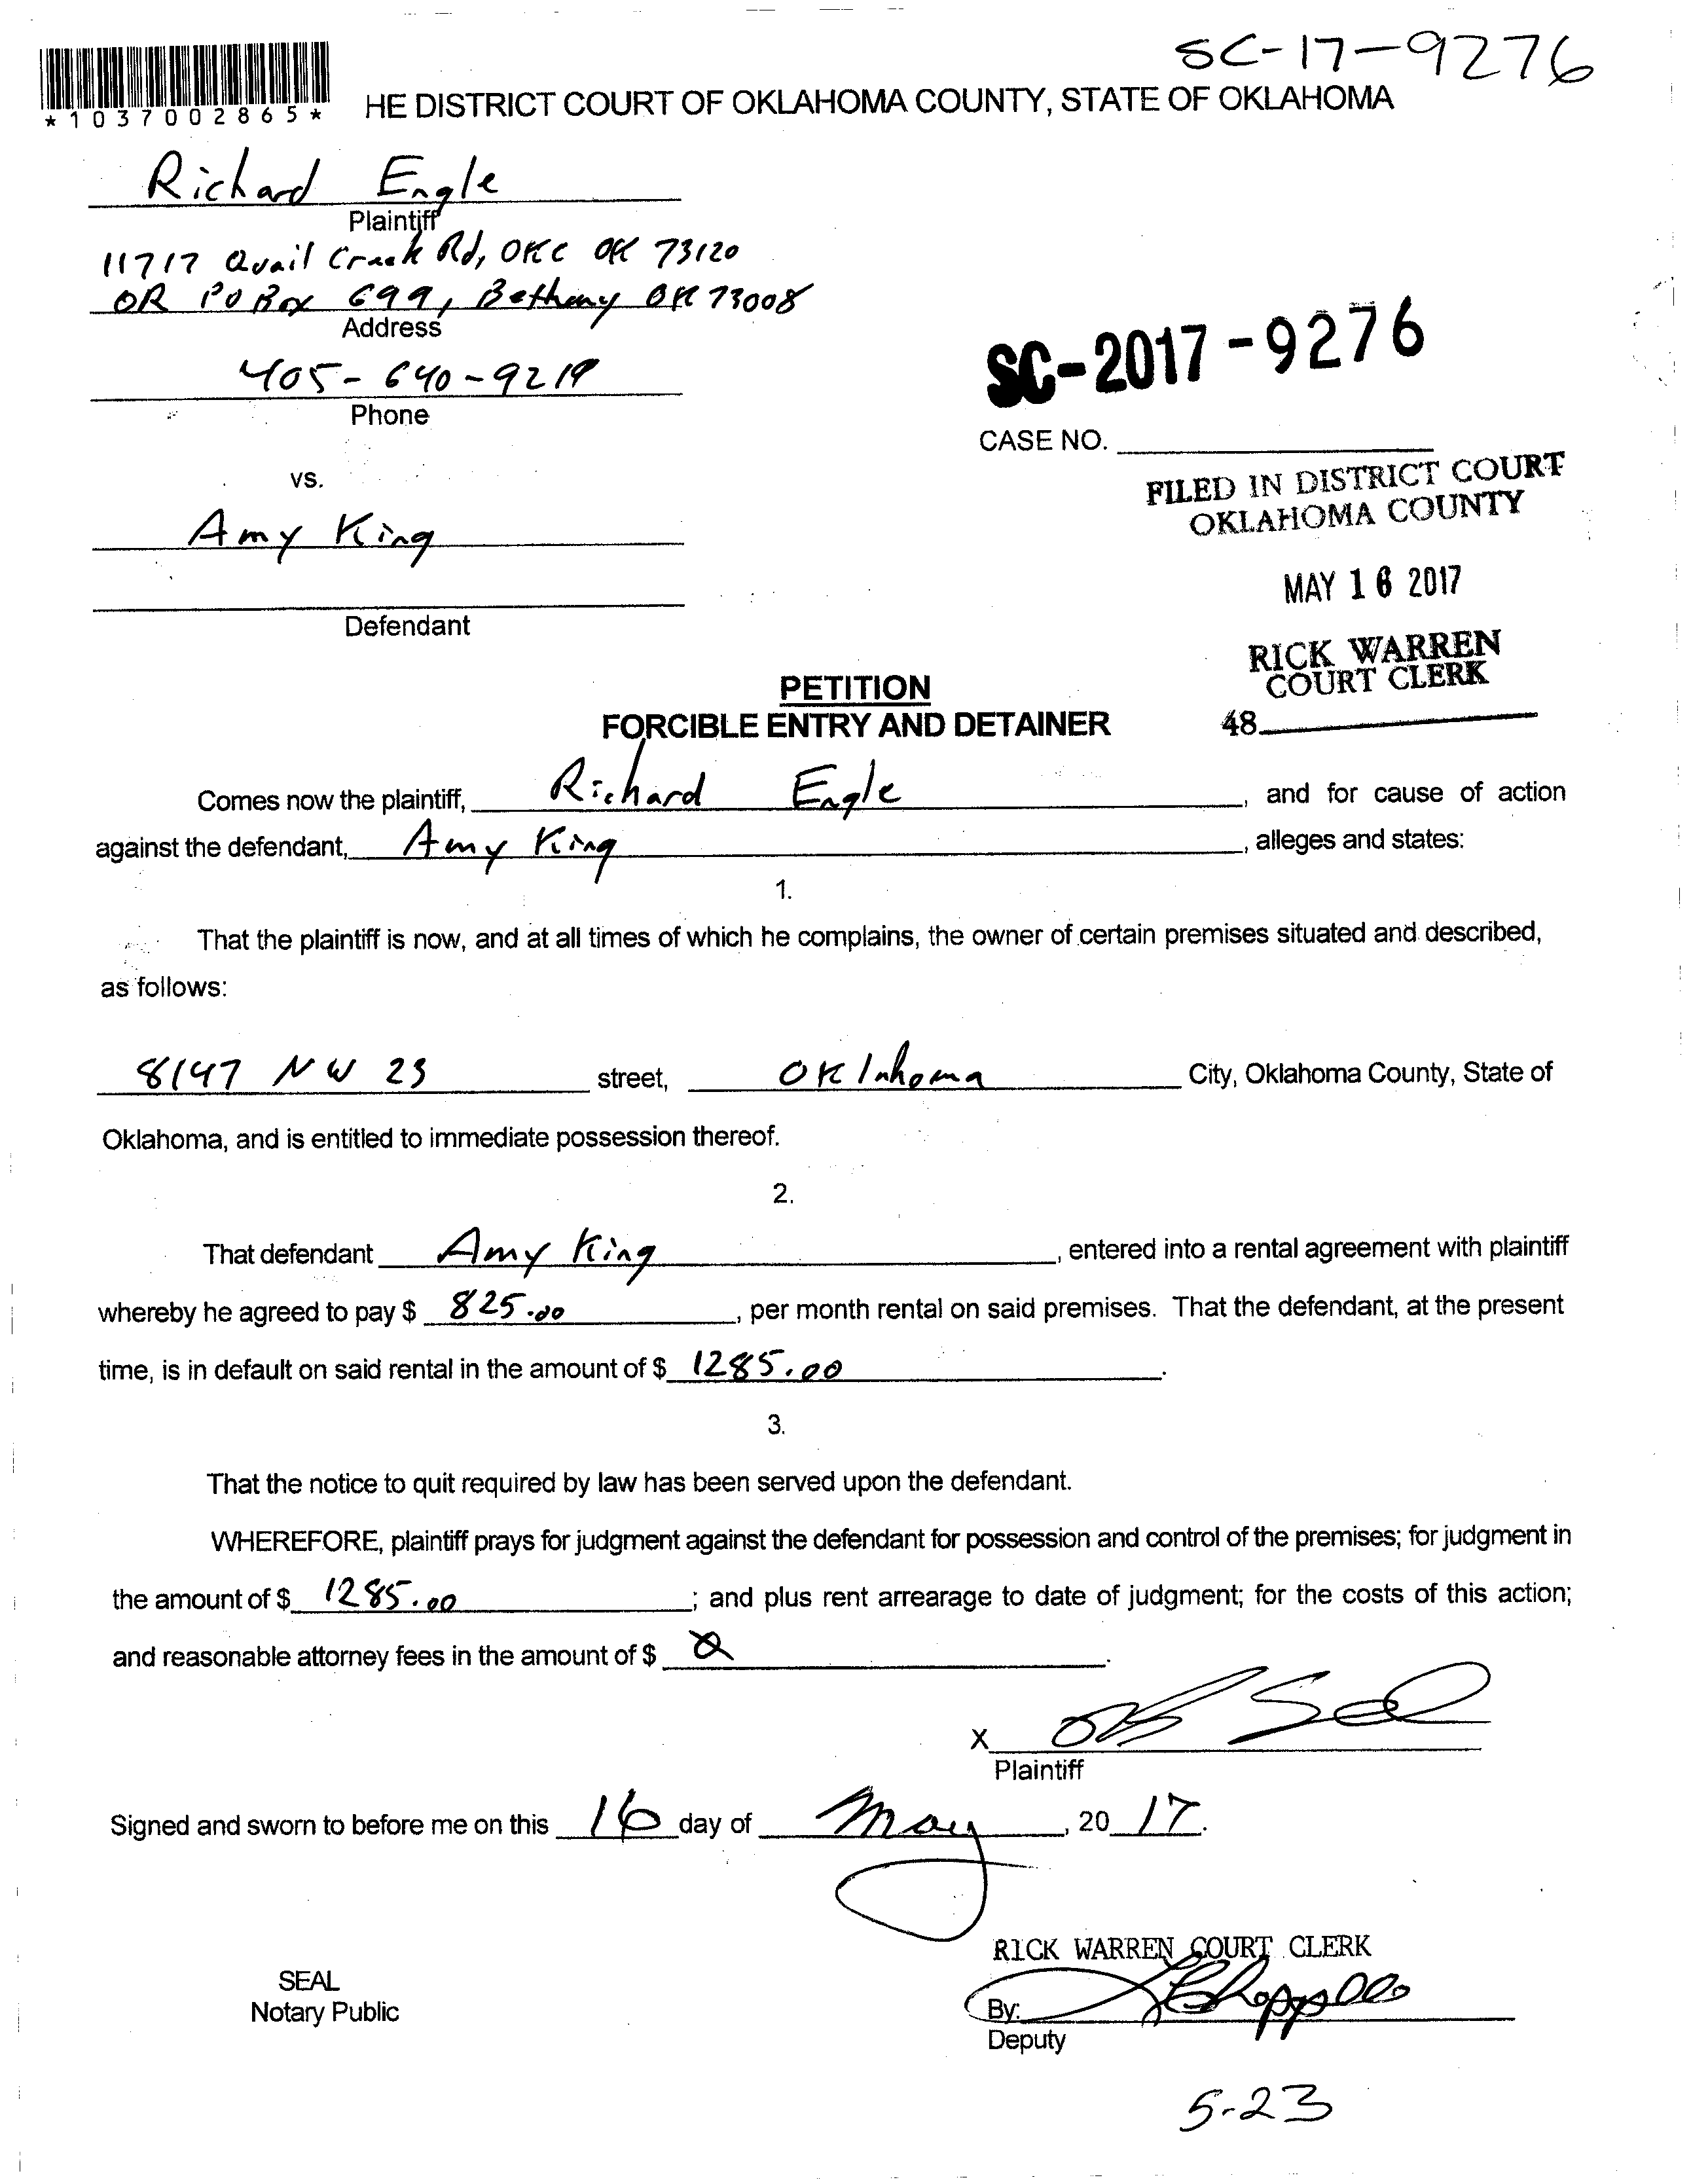 SC-17-9276
*1037002865*
HE DISTRICT COURT OF OKLAHOMA COUNTY, STATE OF OKLAHOMA
Richard Engle
Plaintiff
11717 Quail Creek Rd, OKC OK 73120
OR PO Box 699, Bethany OK 73008
Address
405-640-9219
Phone
SC-2017-9276
CASE NO.
vs.
FILED IN DISTRICT COURT
OKLAHOMA COUNTY
Amy King
MAY 16 2017
Defendant
RICK WARREN
COURT CLERK
48
PETITION
FORCIBLE ENTRY AND DETAINER
Comes now the plaintiff, Richard Engle, and for cause of action
against the defendant, Amy King, alleges and states:
1.
That the plaintiff is now, and at all times of which he complains, the owner of certain premises situated and described,
as follows:
8147 NW 23 street, Oklahoma City, Oklahoma County, State of
Oklahoma, and is entitled to immediate possession thereof.
2.
That defendant Amy King, entered into a rental agreement with plaintiff
whereby he agreed to pay $ 825.00, per month rental on said premises. That the defendant, at the present
time, is in default on said rental in the amount of $ 1285.00.
3.
That the notice to quit required by law has been served upon the defendant.
WHEREFORE, plaintiff prays for judgment against the defendant for possession and control of the premises; for judgment in
the amount of $ 1285.00; and plus rent arrearage to date of judgment; for the costs of this action;
and reasonable attorney fees in the amount of $
X
Plaintiff
Signed and sworn to before me on this 16 day of May, 20 17.
RICK WARREN COURT CLERK
SEAL
Notary Public
By:
Deputy
5-23